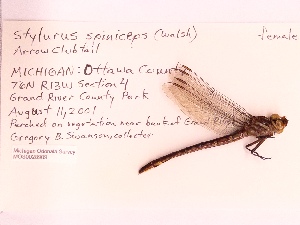 Stylurus spiniceps (Walsh) female
Arrow Clubtail
MICHIGAN: Ottawa County
T6N R13W Section 4
Grand River County Park
August 11, 2001
Perched on vegetation near bank of Grand
Gregory B. Swanson, collector
Michigan Odonata Survey